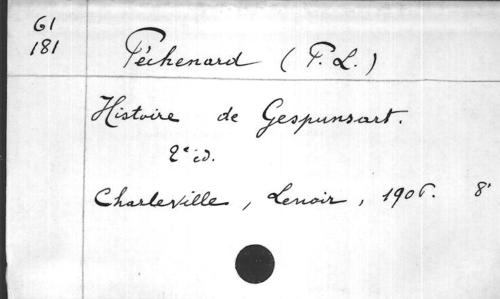 61
181
Péchenard (P. L.)
Histoire de Gespunsart.
2e éd.
Charleville, Lenoir, 1906. 8°